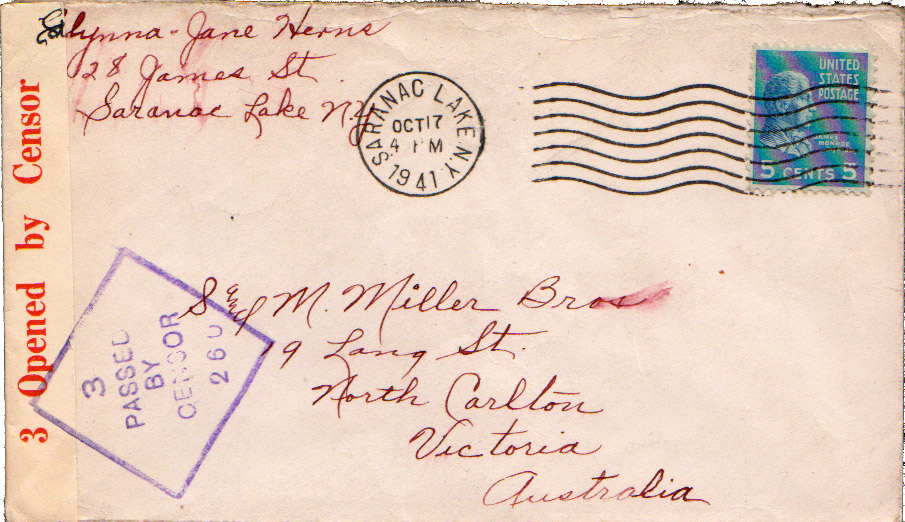 Glynna-Jane Herns
28 James St
Saranac Lake N.Y.
SARANAC LAKE N.Y.
OCT 17
4 PM
1941
UNITED
STATES
POSTAGE
JAMES
MONROE
5 CENTS 5
3 Opened by Censor
3
PASSED
BY
CENSOR
260
S and M. Miller Bros
19 Lang St.
North Carlton
Victoria
Australia